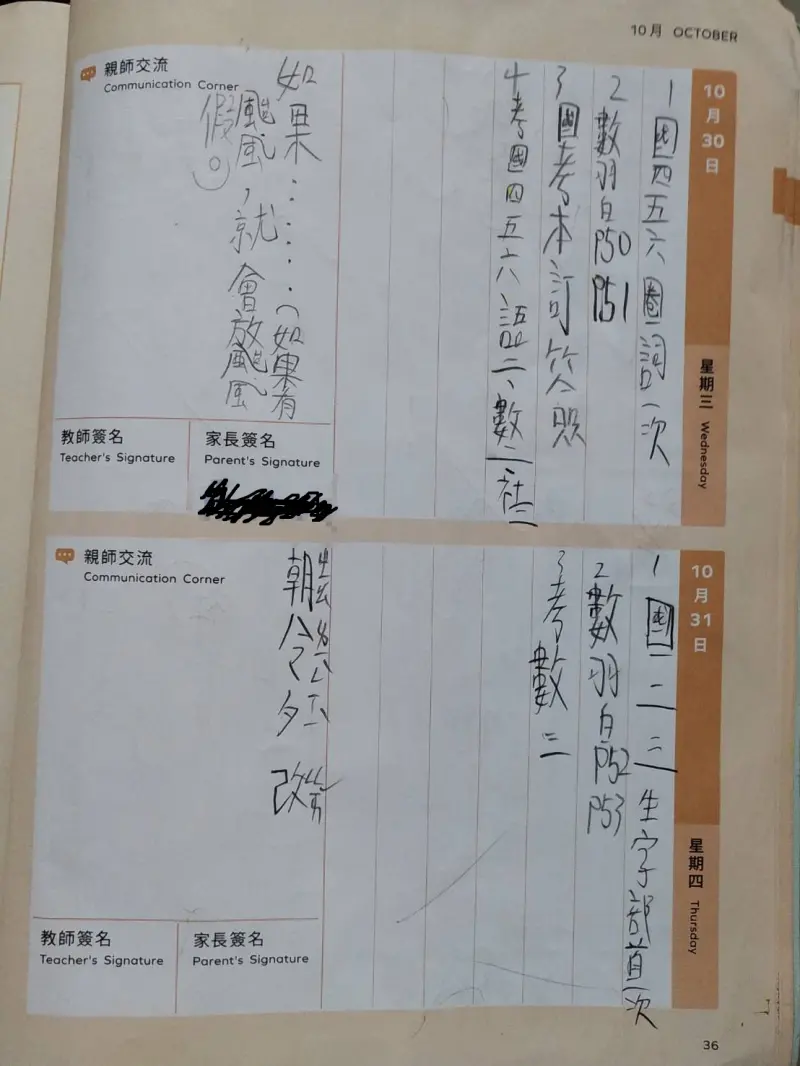 10月 OCTOBER
10月30日
星期三 Wednesday
1 國四五六圈詞一次
2 數羽白P50 P51
3 國考本訂
4 考國四五六語二、數二社二
親師交流
Communication Corner
如果……（如果有
颱風，就會放颱風
假
教師簽名
Teacher's Signature
家長簽名
Parent's Signature
10月31日
星期四 Thursday
1 國一二三生字部首一次
2 數羽白P52 P53
3 考數三
親師交流
Communication Corner
朝令夕改
教師簽名
Teacher's Signature
家長簽名
Parent's Signature
36